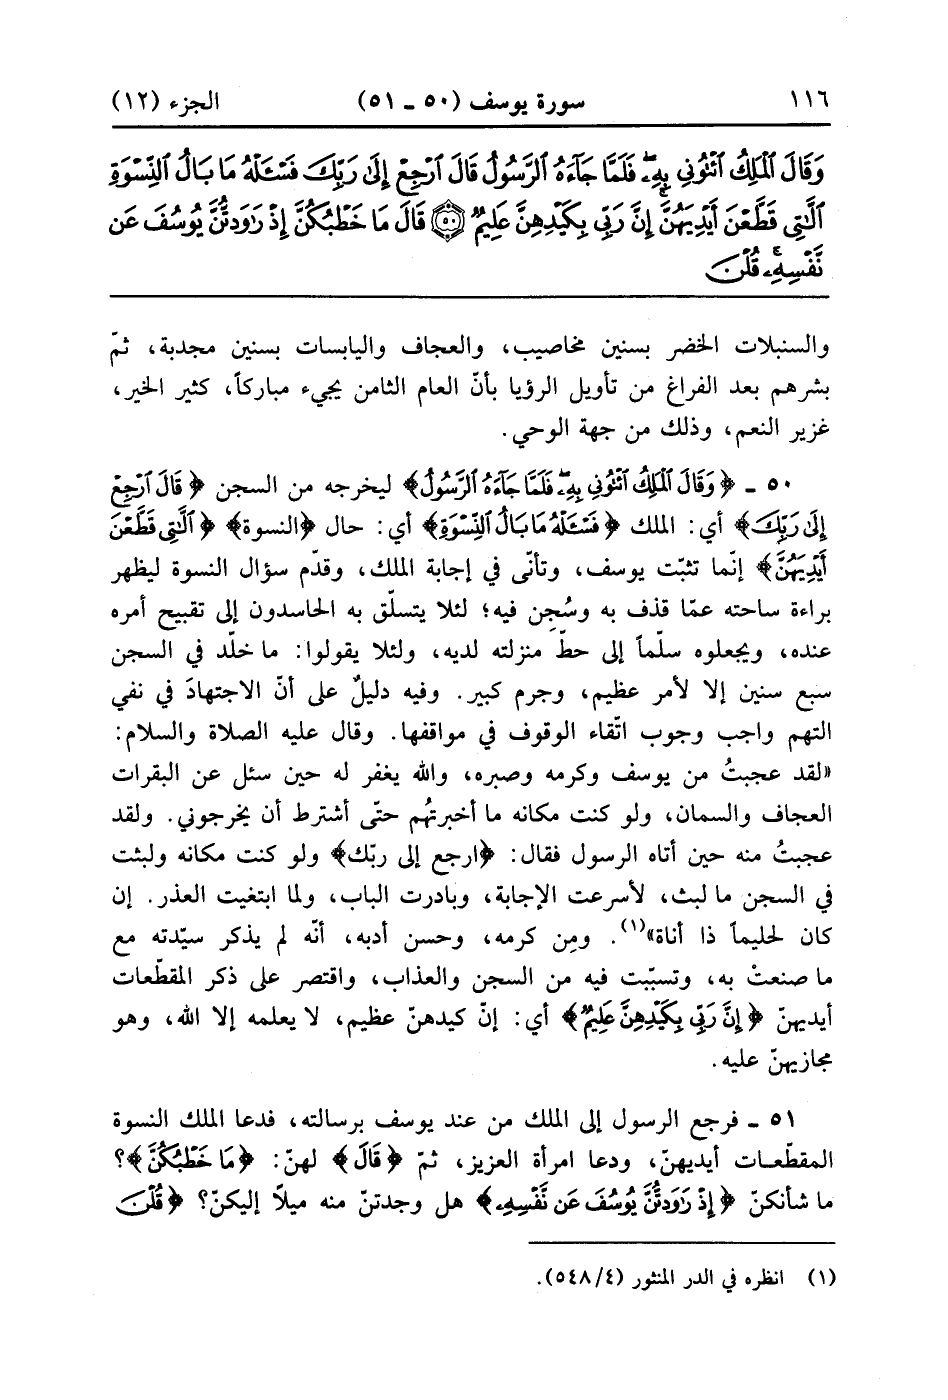 ١١٦ سورة يوسف (٥٠ ـ ٥١) الجزء (١٢)
وَقَالَ ٱلْمَلِكُ ٱئْتُونِى بِهِۦۖ فَلَمَّا جَآءَهُ ٱلرَّسُولُ قَالَ ٱرْجِعْ إِلَىٰ رَبِّكَ فَسْـَٔلْهُ مَا بَالُ ٱلنِّسْوَةِ
ٱلَّٰتِى قَطَّعْنَ أَيْدِيَهُنَّۚ إِنَّ رَبِّى بِكَيْدِهِنَّ عَلِيمٌ ۝٥٠ قَالَ مَا خَطْبُكُنَّ إِذْ رَٰوَدتُّنَّ يُوسُفَ عَن
نَّفْسِهِۦۚ قُلْنَ
والسنبلات الخضر بسنين مخاصيب، والعجاف واليابسات بسنين مجدبة، ثمّ
بشرهم بعد الفراغ من تأويل الرؤيا بأنّ العام الثامن يجيء مباركاً، كثير الخير،
غزير النعم، وذلك من جهة الوحي.
٥٠ ـ ﴿وَقَالَ ٱلْمَلِكُ ٱئْتُونِى بِهِۦۖ فَلَمَّا جَآءَهُ ٱلرَّسُولُ﴾ ليخرجه من السجن ﴿قَالَ ٱرْجِعْ
إِلَىٰ رَبِّكَ﴾ أي: الملك ﴿فَسْـَٔلْهُ مَا بَالُ ٱلنِّسْوَةِ﴾ أي: حال ﴿النسوة﴾ ﴿ٱلَّٰتِى قَطَّعْنَ
أَيْدِيَهُنَّ﴾ إنّما تثبّت يوسف، وتأنّى في إجابة الملك، وقدّم سؤال النسوة ليظهر
براءة ساحته عمّا قذف به وسُجِن فيه؛ لئلا يتسلّق به الحاسدون إلى تقبيح أمره
عنده، ويجعلوه سلّماً إلى حطّ منزلته لديه، ولئلا يقولوا: ما خلّد في السجن
سبع سنين إلا لأمر عظيم، وجرم كبير. وفيه دليلٌ على أنّ الاجتهادَ في نفي
التهم واجب وجوب اتّقاء الوقوف في مواقفها. وقال عليه الصلاة والسلام:
«لقد عجبتُ من يوسف وكرمه وصبره، والله يغفر له حين سئل عن البقرات
العجاف والسمان، ولو كنت مكانه ما أخبرتُهم حتّى أشترط أن يخرجوني. ولقد
عجبتُ منه حين أتاه الرسول فقال: ﴿ارجع إلى ربّك﴾ ولو كنت مكانه ولبثت
في السجن ما لبث، لأسرعت الإجابة، وبادرت الباب، ولما ابتغيت العذر. إن
كان لحليماً ذا أناة»(١). ومِن كرمه، وحسن أدبه، أنّه لم يذكر سيّدته مع
ما صنعتْ به، وتسبّبت فيه من السجن والعذاب، واقتصر على ذكر المقطّعات
أيديهنّ ﴿إِنَّ رَبِّى بِكَيْدِهِنَّ عَلِيمٌ﴾ أي: إنّ كيدهنّ عظيم، لا يعلمه إلا الله، وهو
مجازيهنّ عليه.
٥١ ـ فرجع الرسول إلى الملك من عند يوسف برسالته، فدعا الملك النسوة
المقطّعات أيديهنّ، ودعا امرأة العزيز، ثمّ ﴿قَالَ﴾ لهنّ: ﴿مَا خَطْبُكُنَّ﴾؟
ما شأنكنّ ﴿إِذْ رَٰوَدتُّنَّ يُوسُفَ عَن نَّفْسِهِۦ﴾ هل وجدتنّ منه ميلاً إليكنّ؟ ﴿قُلْنَ
(١) انظره في الدر المنثور (٤/٥٤٨).